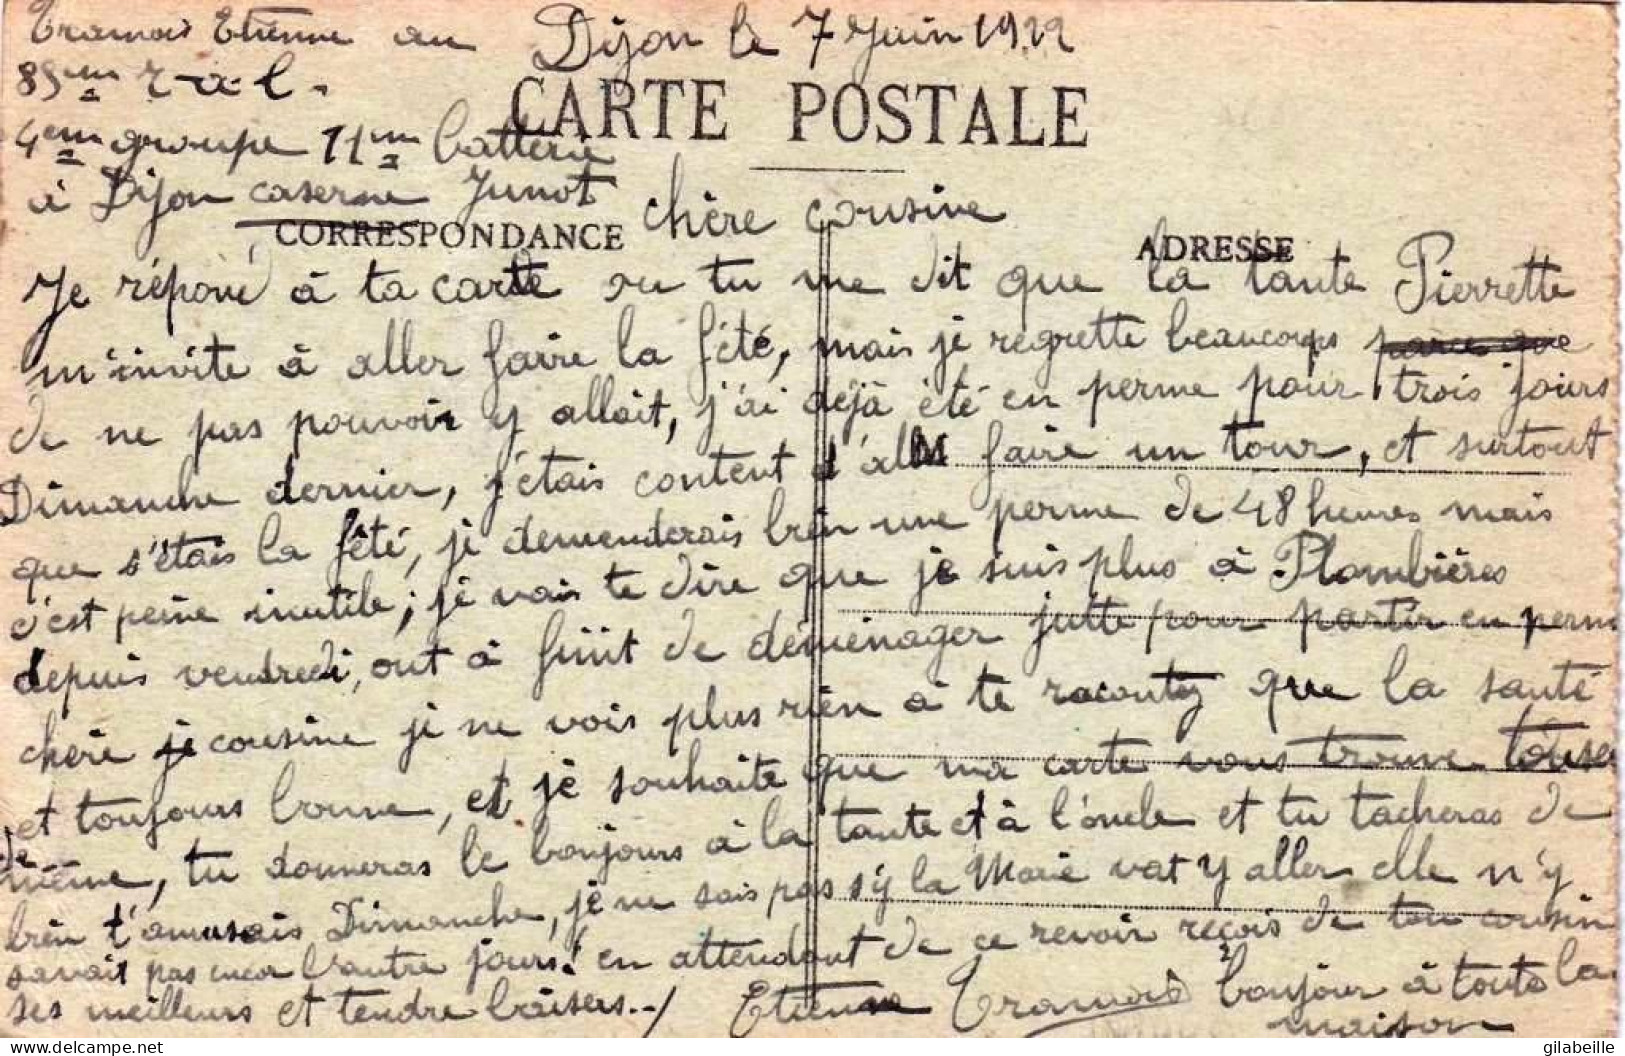 Tramois Etienne au Dijon le 7 Juin 1922
85em r-a-l.
CARTE POSTALE
4em groupe 11em batterie
à Dijon caserne Junot
chère cousine
CORRESPONDANCE
ADRESSE
Je répond à ta carte ou tu me dit que la tante Pierrette
m'invite à aller faire la fété, mais je regrette beaucoups parce que
de ne pas pouvoir y allait, j'ai déjà été en perme pour trois jours
Dimanche dernier, j'étais content d'aller faire un tour, et surtout
que s'étais la fété, je demenderais bien une perme de 48 heures mais
c'est peine inutile; je vais te dire que je suis plus à Plombières
depuis vendredi, ont à finit de déménager jutte pour partir en perme
chère je cousine je ne vois plus rién à te racontez que la santé
et toujours bonne, et je souhaite que ma carte vous trouve touse
de même, tu donneras le bonjours à la tante et à l'oncle et tu tacheras de
bién t'amusais Dimanche, je ne sais pas s'y la Marie vat y aller elle n'y
savait pas encor l'autre jours! en attendant de ce revoir reçois de ton cousin
ses meilleurs et tendre baisers../ Etienne Tramois bonjour à toute la
maison
gilabeille